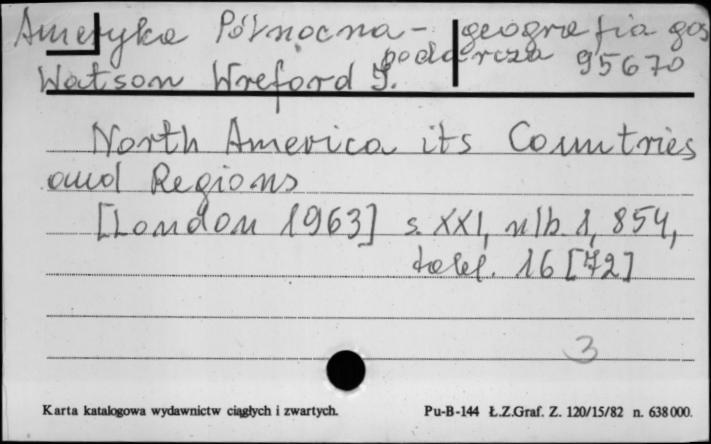 Ameryka Północna - geografia gos
podarcza 95670
Watson Wreford J.
North America its Countries
and Regions
[London 1963] s. XXI, nlb. 1, 854,
tabl. 16 [72]
3
Karta katalogowa wydawnictw ciągłych i zwartych. Pu-B-144 Ł.Z.Graf. Z. 120/15/82 n. 638000.